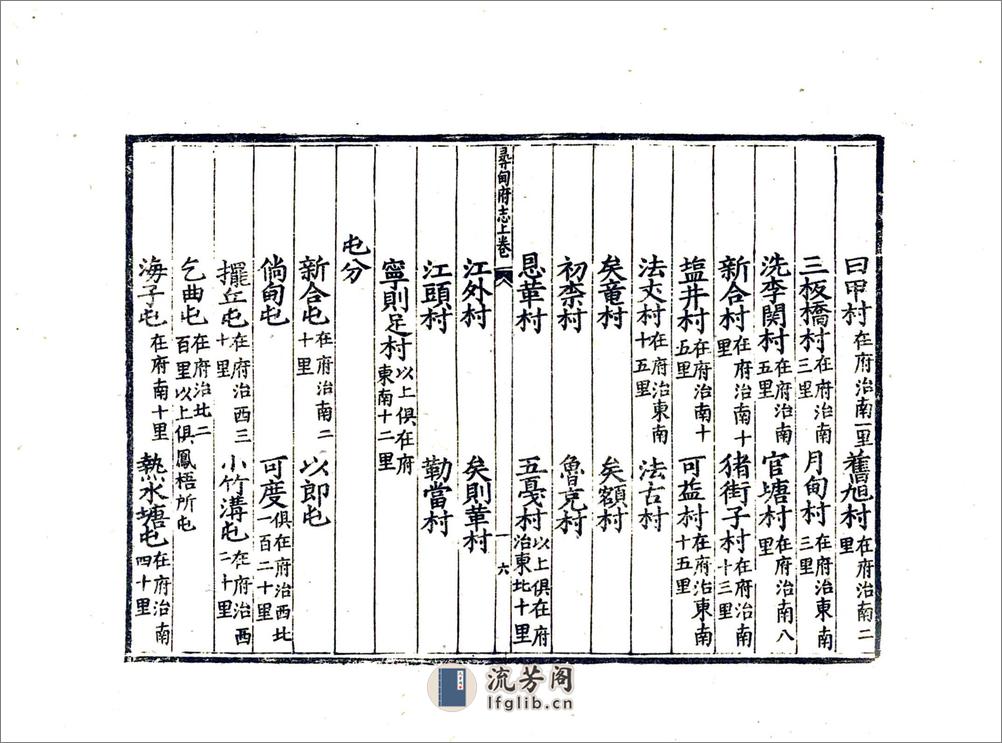 曰甲村在府治南一里 舊旭村在府治南二里
三板橋村在府治南三里 月甸村在府治東南三里
洗李関村在府治南五里 官塘村在府治南八里
新合村在府治南十里 猪街子村在府治南十三里
塩井村在府治南十五里 可益村在府治東南十五里
法丈村在府治東南十五里 法古村
矣竜村 矣額村
初柰村 魯克村
恩革村 五戞村以上俱在府治東北十里
尋甸府志上卷 一六
江外村 矣則革村
江頭村 勒當村
寧則足村以上俱在府東南十二里
屯分
新合屯在府治南二十里 以郎屯
倘甸屯 可度俱在府治西北一百二十里
擺丘屯在府治西三十里 小竹溝屯在府治西二十里
乞曲屯在府治北二百里以上俱鳳梧所屯
海子屯在府南十里 熱水塘屯在府治南四十里
流芳阁
lfglib.cn